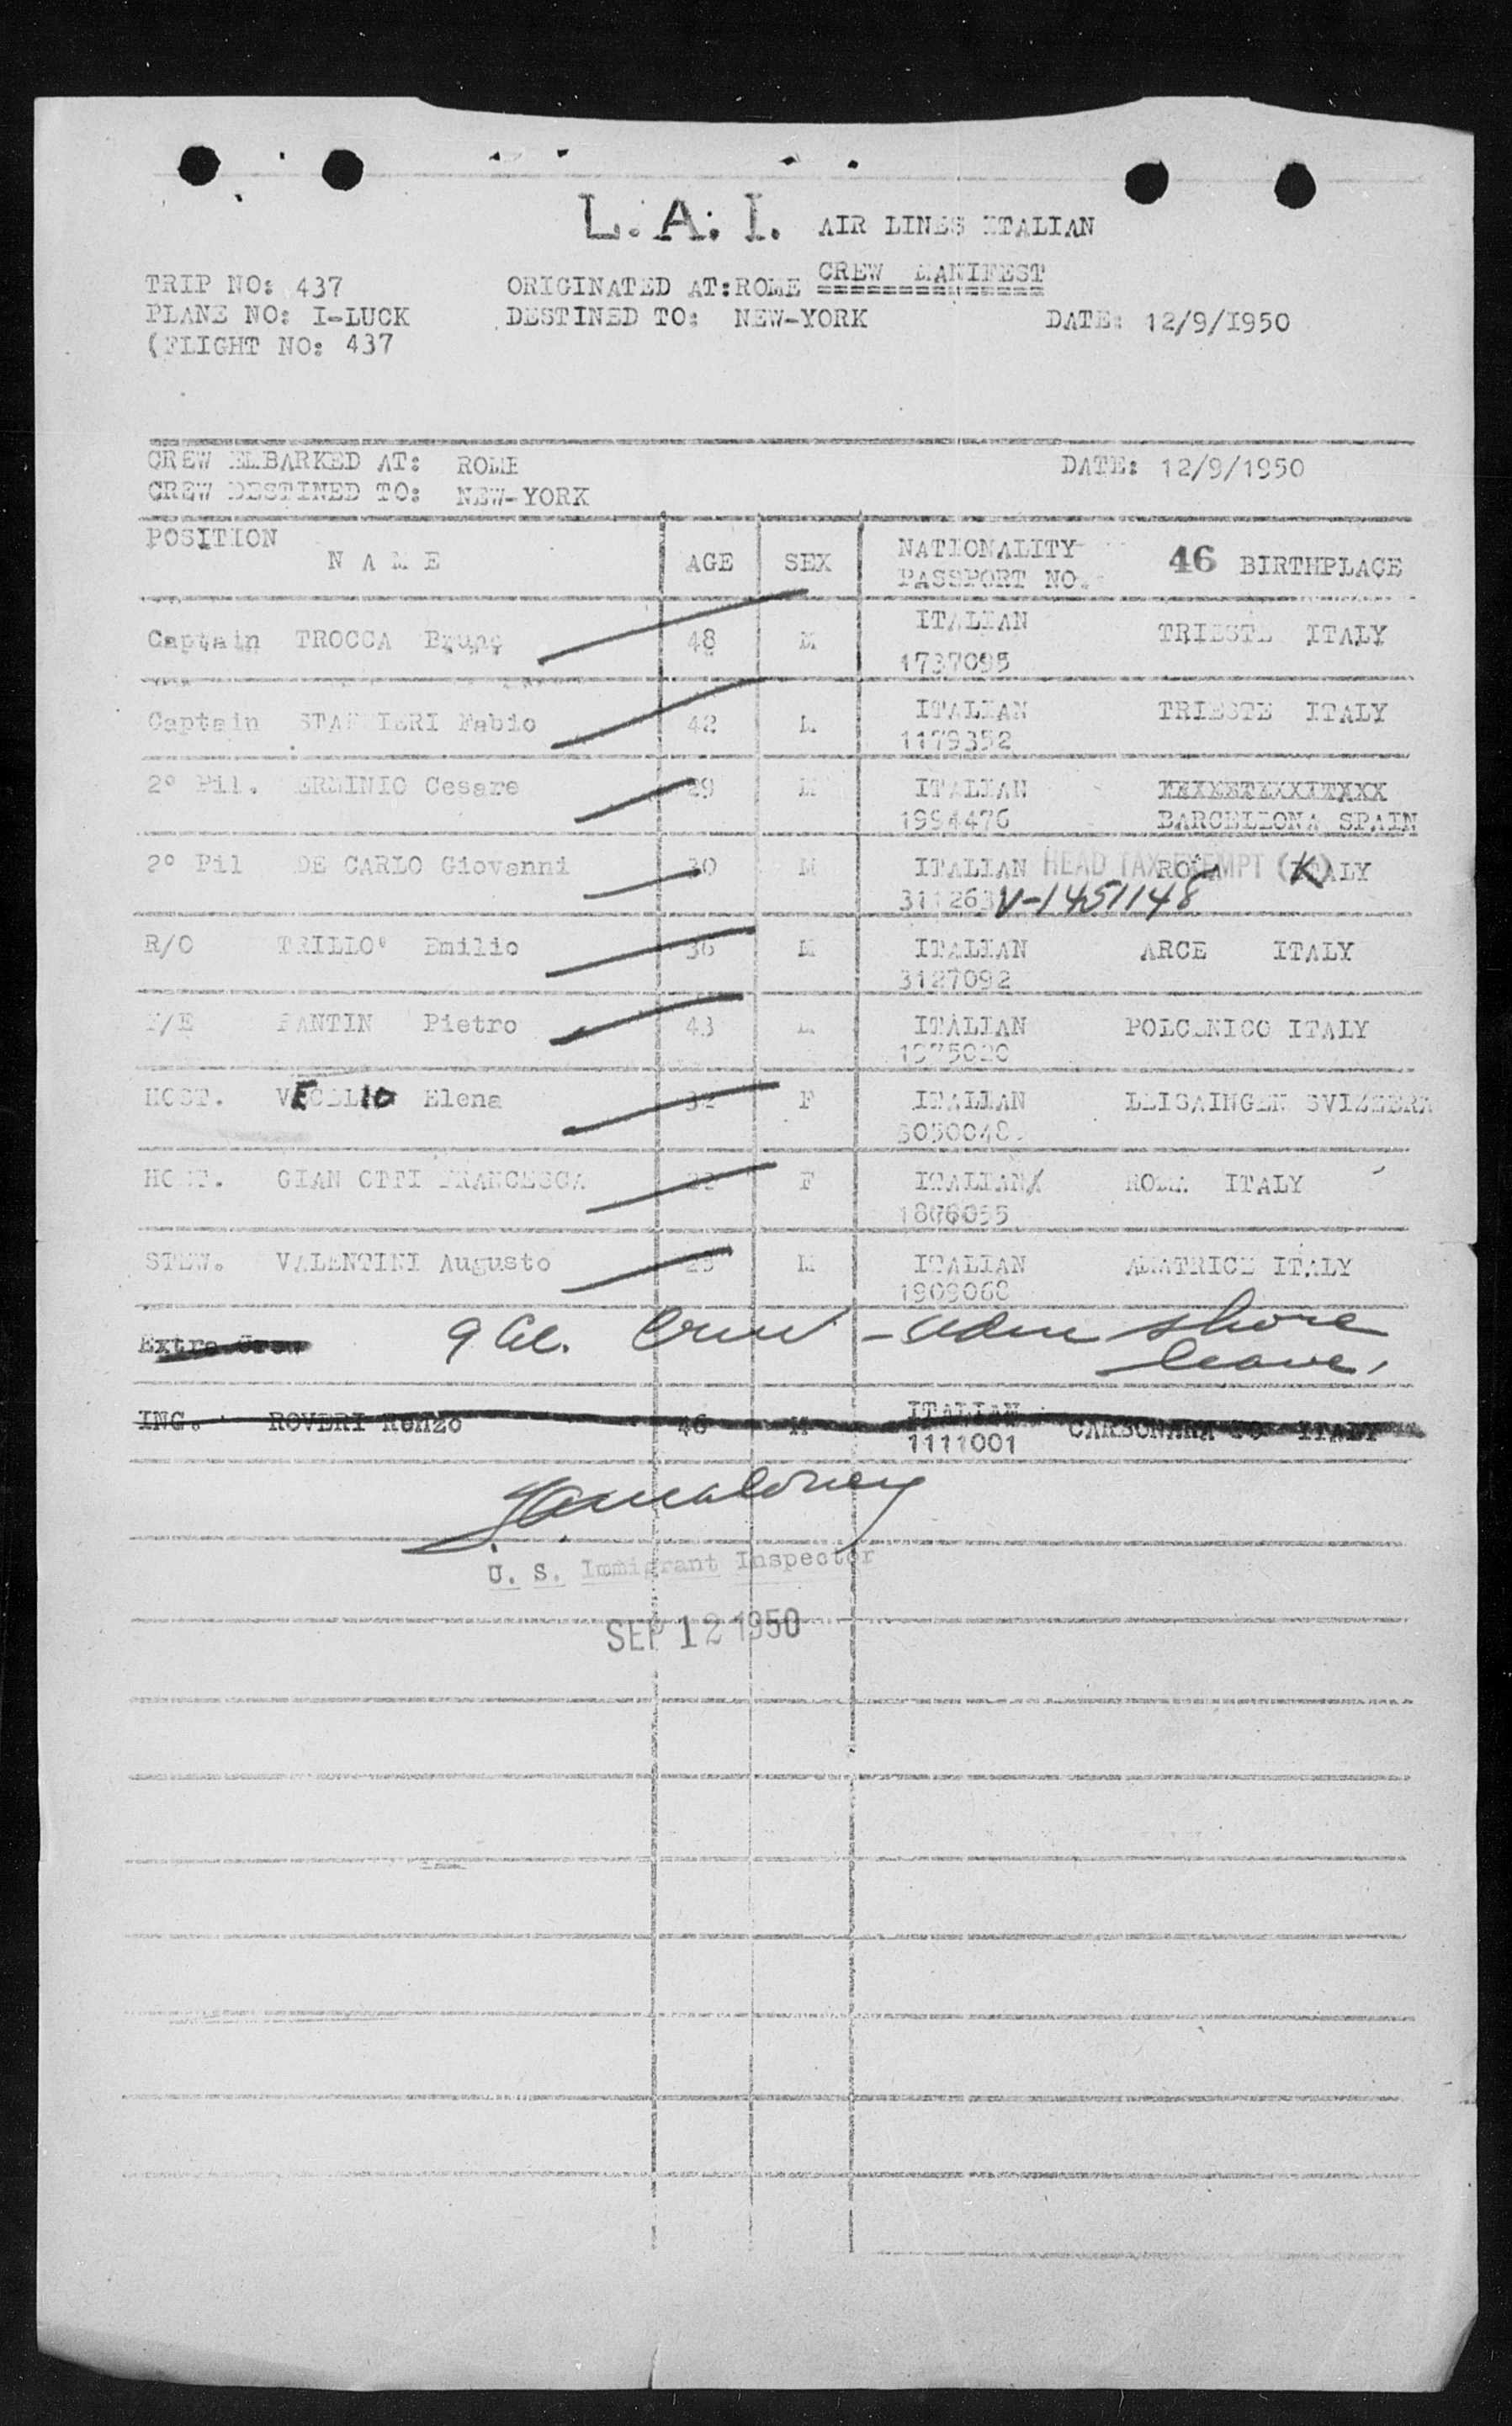 L. A. I. AIR LINES ITALIAN
CREW MANIFEST
TRIP NO: 437 ORIGINATED AT:ROME
PLANE NO: I-LUCK DESTINED TO: NEW-YORK DATE: 12/9/1950
(FLIGHT NO: 437
CREW EMBARKED AT: ROME DATE: 12/9/1950
CREW DESTINED TO: NEW-YORK
POSITION
N A M E AGE SEX NATIONALITY PASSPORT NO. 46 BIRTHPLACE
Captain TROCCA Bruno 48 M ITALIAN TRIESTE ITALY
1737095
Captain Fabio 42 M ITALIAN TRIESTE ITALY
1179352
2° Pil. ERMINIO Cesare 29 M ITALIAN
1994476 BARCELLONA SPAIN
2° Pil DE CARLO Giovanni 30 M ITALIAN HEAD TAX EXEMPT (K) ROMA ITALY
V-1451148
R/O TRILLO' Emilio 36 M ITALIAN ARCE ITALY
3127092
F/E PANTIN Pietro 43 M ITALIAN POLCENICO ITALY
HOST. VECELLIO Elena F ITALIAN SVIZZERA
HOST. FRANCESCA F ITALIAN ROMA ITALY
STEW. VALENTINI Augusto M ITALIAN AMATRICE ITALY
1909068
Extra Crew 9 al. Crew - adm shore
leave.
ING. ROVERI Renzo 46 M ITALIAN CARBONARA PO ITALY
1111001
U. S. Immigrant Inspector
SEP 12 1950